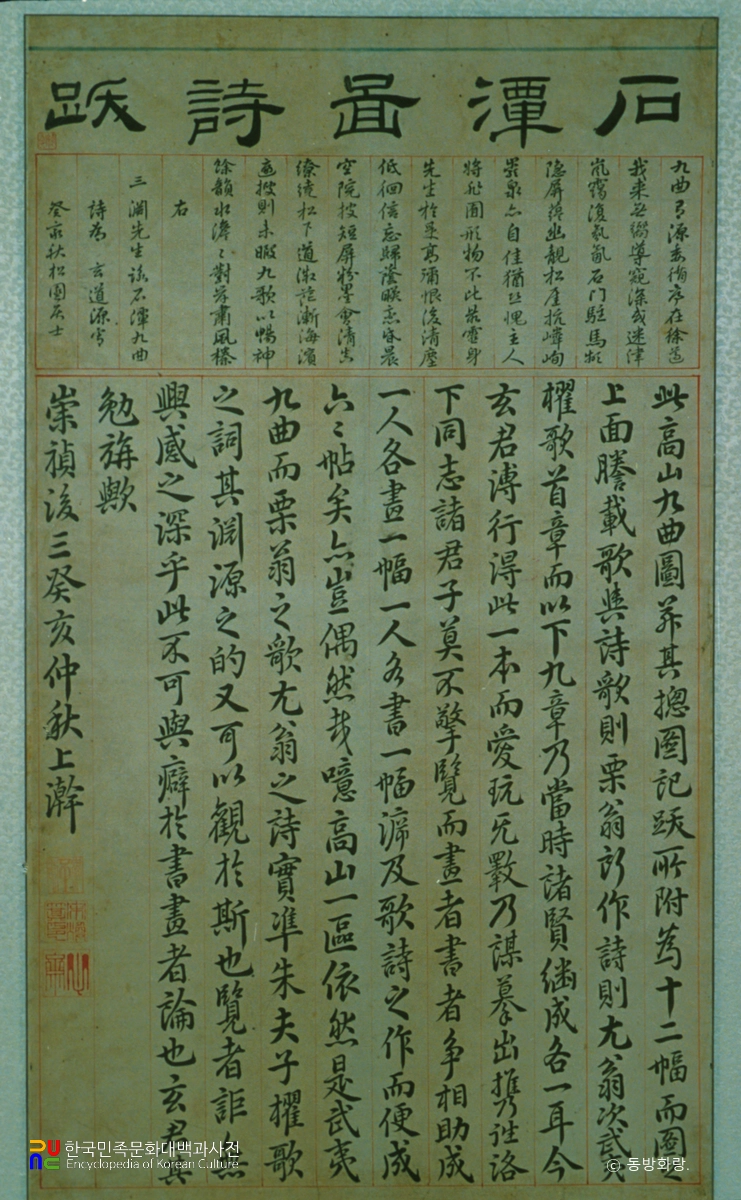 石潭啚詩跋
九曲有源委循序在徐
我来無嚮導窺深或迷津
嵐靄復氤氳石门駐馬頻
隐屏蔼幽靚松崖抗嶙峋
岩泉亦自佳猶且愧主人
將非圖形物不比
先生於是高彌恨後清塵
低徊信忘歸蔭暎忘昏晨
空院披短屏粉墨會清真
繚繞松下道淑詭漸海濱
則未暇九歌以暢神
餘韻水濺〻對岸肅風榛
右
三淵先生詠石潭九曲
詩為玄道源書
癸亥秋松園居士
此高山九曲圖并其摠圖記跋所附為十二幅而圖之
上面謄載歌與詩歌則栗翁所作詩則尤翁次武夷
櫂歌首章而以下九章乃當時諸賢継成各一耳今
玄君溥行得此一本而愛玩无斁乃謀摹出携詣洛
下同志諸君子莫不擎覽而畫者書者争相助成
一人各畫一幅一人各書一幅及歌詩之作而便成
六〻帖矣亦豈偶然哉噫高山一區依然是武夷
九曲而栗翁之歌尤翁之詩實準朱夫子櫂歌
之詞其淵源之的又可以觀於斯也覽者詎無
興感之深乎此不可與癖於書畫者論也玄君其
勉旃歟
崇禎後三癸亥仲秋上澣
한국민족문화대백과사전
Encyclopedia of Korean Culture
© 동방화랑.